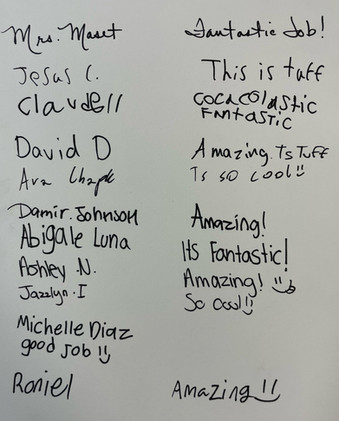 Mrs. Maset Fantastic Job!
Jesus C. This is tuff
Claudell COCACOLASTIC
FANTASTIC
David D Amazing. Ts Tuff
Ava Ts so cool
Damir. Johnson Amazing!
Abigale Luna Its Fantastic!
Ashley .N. Amazing!
Jazelyn .I So cool
Michelle Diaz
good job
Roniel Amazing